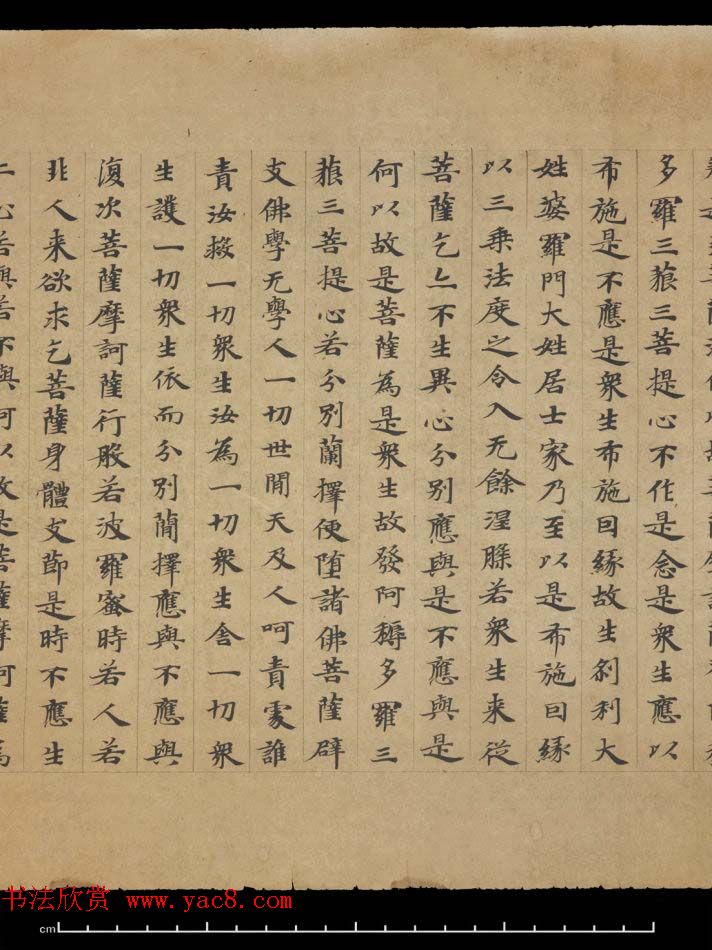 多羅三藐三菩提心不作是念是衆生應以
布施是不應是衆生布施囙縁故生刹利大
姓婆羅門大姓居士家乃至以是布施囙縁
以三乗法度之令入无餘涅槃若衆生来従
菩薩乞亦不生異心分別應與是不應與是
何以故是菩薩為是衆生故發阿耨多羅三
藐三菩提心若分別蕳擇便堕諸佛菩薩辟
支佛學无學人一切世間天及人呵責䖏誰
責汝救一切衆生汝為一切衆生舎一切衆
生護一切衆生依而分別蕳擇應與不應與
復次菩薩摩訶薩行般若波羅蜜時若人若
非人来欲求乞菩薩身體支節是時不應生
二心若與若不與何以故是菩薩摩訶薩為
书法欣赏 www.yac8.com
cm